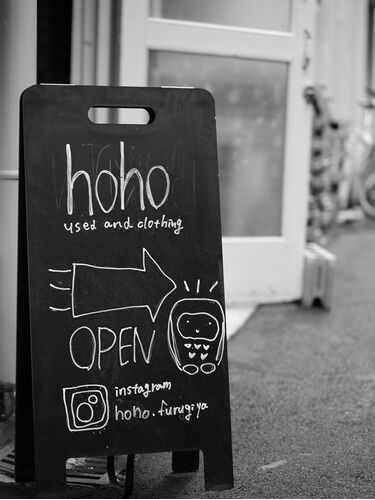 hoho
used and clothing
OPEN
instagram
hoho.furugiya